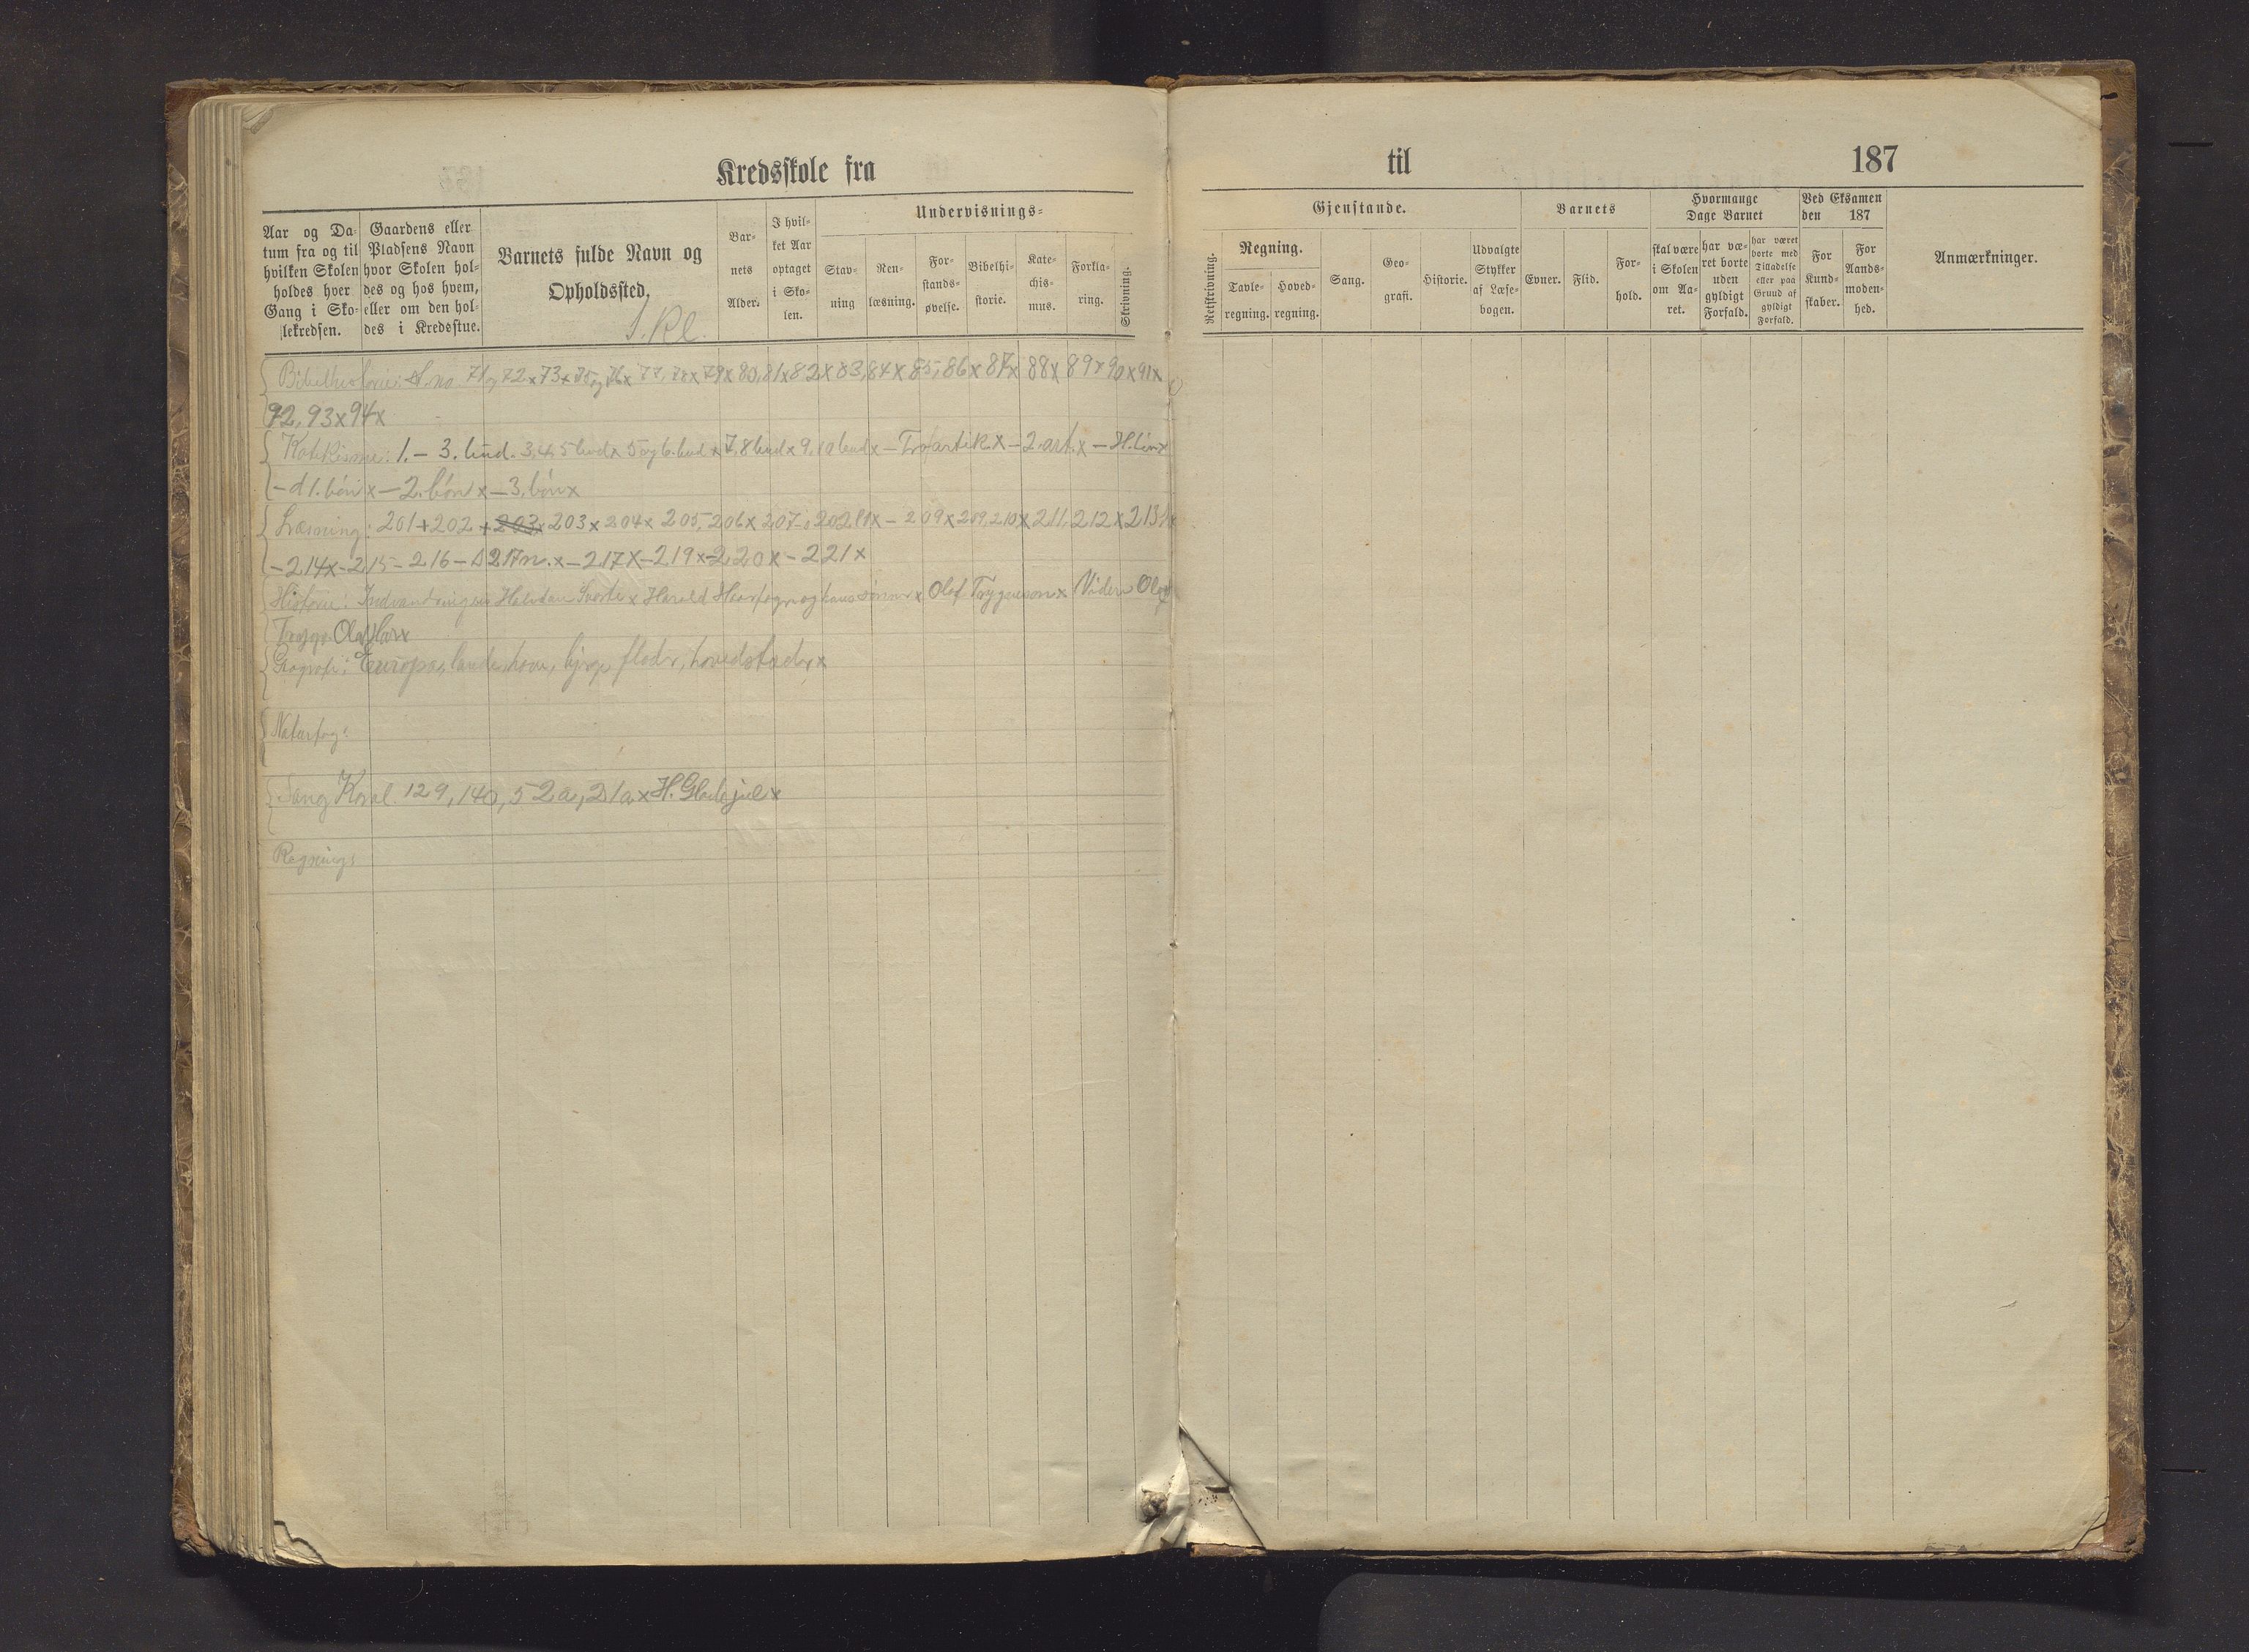 Kredsskole fra
til
187
Aar og Da-
tum fra og til
hvilken Skolen
holdes hver
Gang i Sko-
lekredsen.
Gaardens eller
Pladsens Navn
hvor Skolen hol-
des og hos hvem,
eller om den hol-
des i Kredsstue.
Barnets fulde Navn og
Opholdssted.
Bar-
nets
Alder.
I hvil-
ket Aar
optaget
i Sko-
len.
Undervisnings-
Stav-
ning
Ren-
læsning.
For-
stands-
øvelse.
Bibelhi-
storie.
Kate-
chis-
mus.
Forkla-
ring.
Skrivning.
Gjenstande.
Retskrivning.
Regning.
Tavle-
regning.
Hoved-
regning.
Sang.
Geo-
grafi.
Historie.
Udvalgte
Stykker
af Læse-
bogen.
Barnets
Evner.
Flid.
For-
hold.
Hvormange
Dage Barnet
skal være
i Skolen
om Aa-
ret.
har væ-
ret borte
uden
gyldigt
Forfald.
har været
borte med
Tilladelse
eller paa
Grund af
gyldigt
Forfald.
Ved Eksamen
den 187
For
Kund-
skaber.
For
Aands-
moden-
hed.
Anmærkninger.
Kl.
Bibelhistorie: 71 og 72 x 73 x 75 og 76 x 77, 78 x 79 x 80, 81 x 82 x 83, 84 x 85, 86 x 87 x 88 x 89 x 90 x 91 x
92, 93 x 94 x
Katekisme: 1. - 3. bud. 3, 4, 5 bud x 5 og 6. bud x 7, 8 bud x 9, 10 bud x - Trosartik x - 2. art. x -
- 1. bøn x - 2. bøn x - 3. bøn x
Læsning: 201 + 202 + 203 203 x 204 x 205, 206 x 207 - 209 x 209, 210 x 211, 212 x 213
- 214 x - 215 - 216 - 217 x - 219 x - 220 x - 221 x
Historie: Indvandringen Halvdan Svarte x Harald Haarfagre og hans sønner x Olaf Trygveson x Videre Olaf
Trygv. Olaf
Geografi: Europas lande, have, bjerge, floder, hovedstæder x
Naturfag:
Sang Koral. 129, 140, 52a, 21a x H. Glade jul x
Regning: